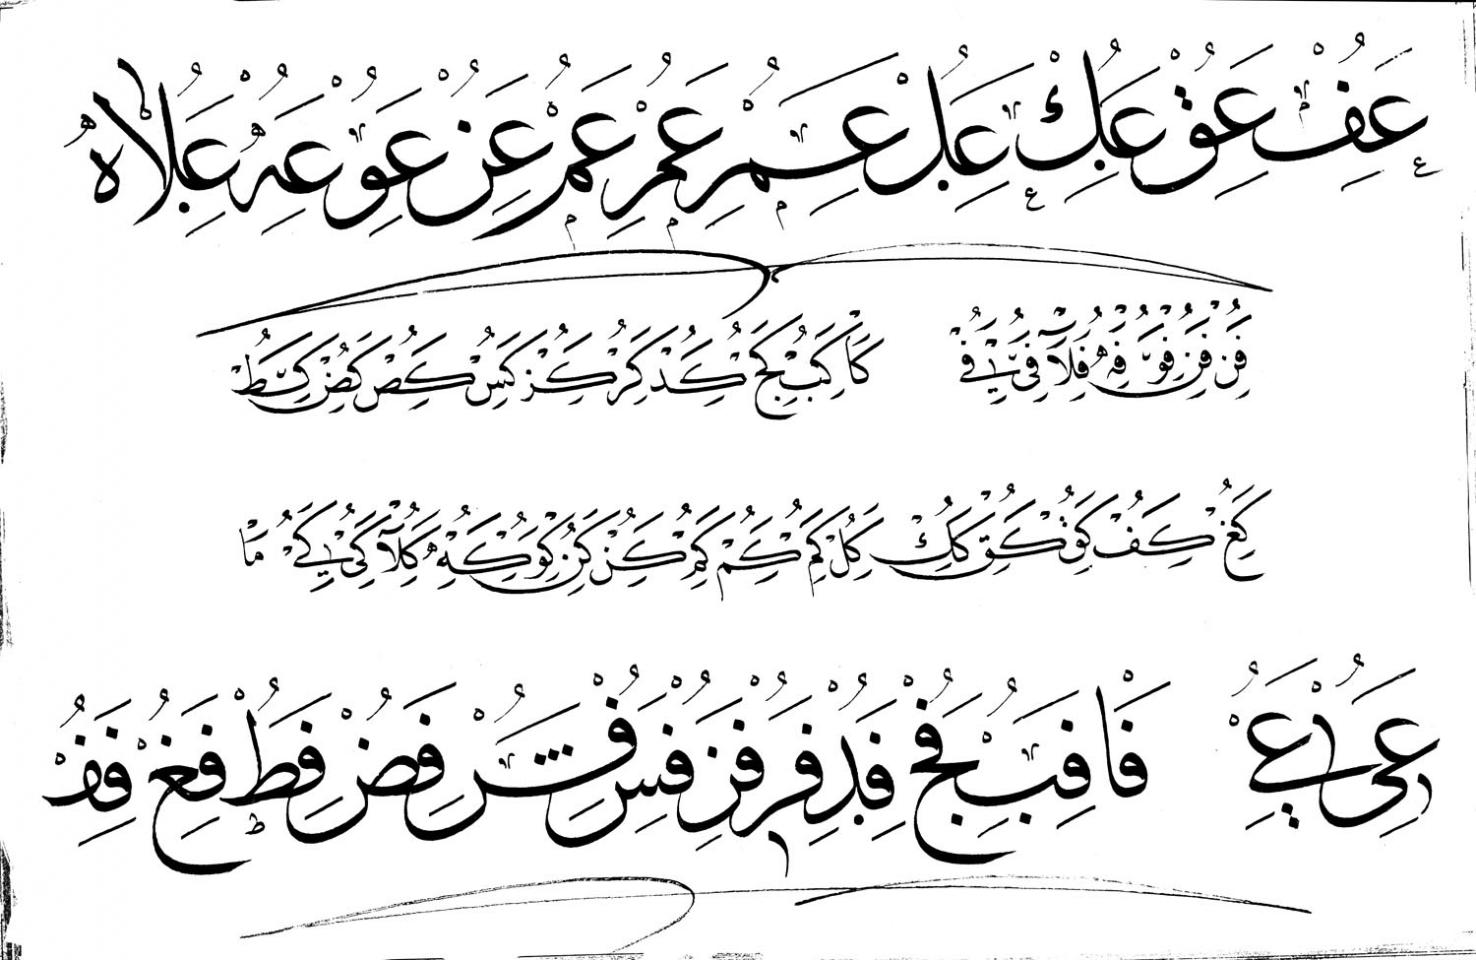 عف عق عك عل عم عم عم عن عو عه علا ه
فن فن فو فه فلا فى في كا كب كج كد كر كز كس كص كض كط
كغ كف كق كق كك كل كم كم كم كن كن كو كه كلا كى كي ما
عى عي فا فب فج فد فر فن فس فس فض فط فغ فف